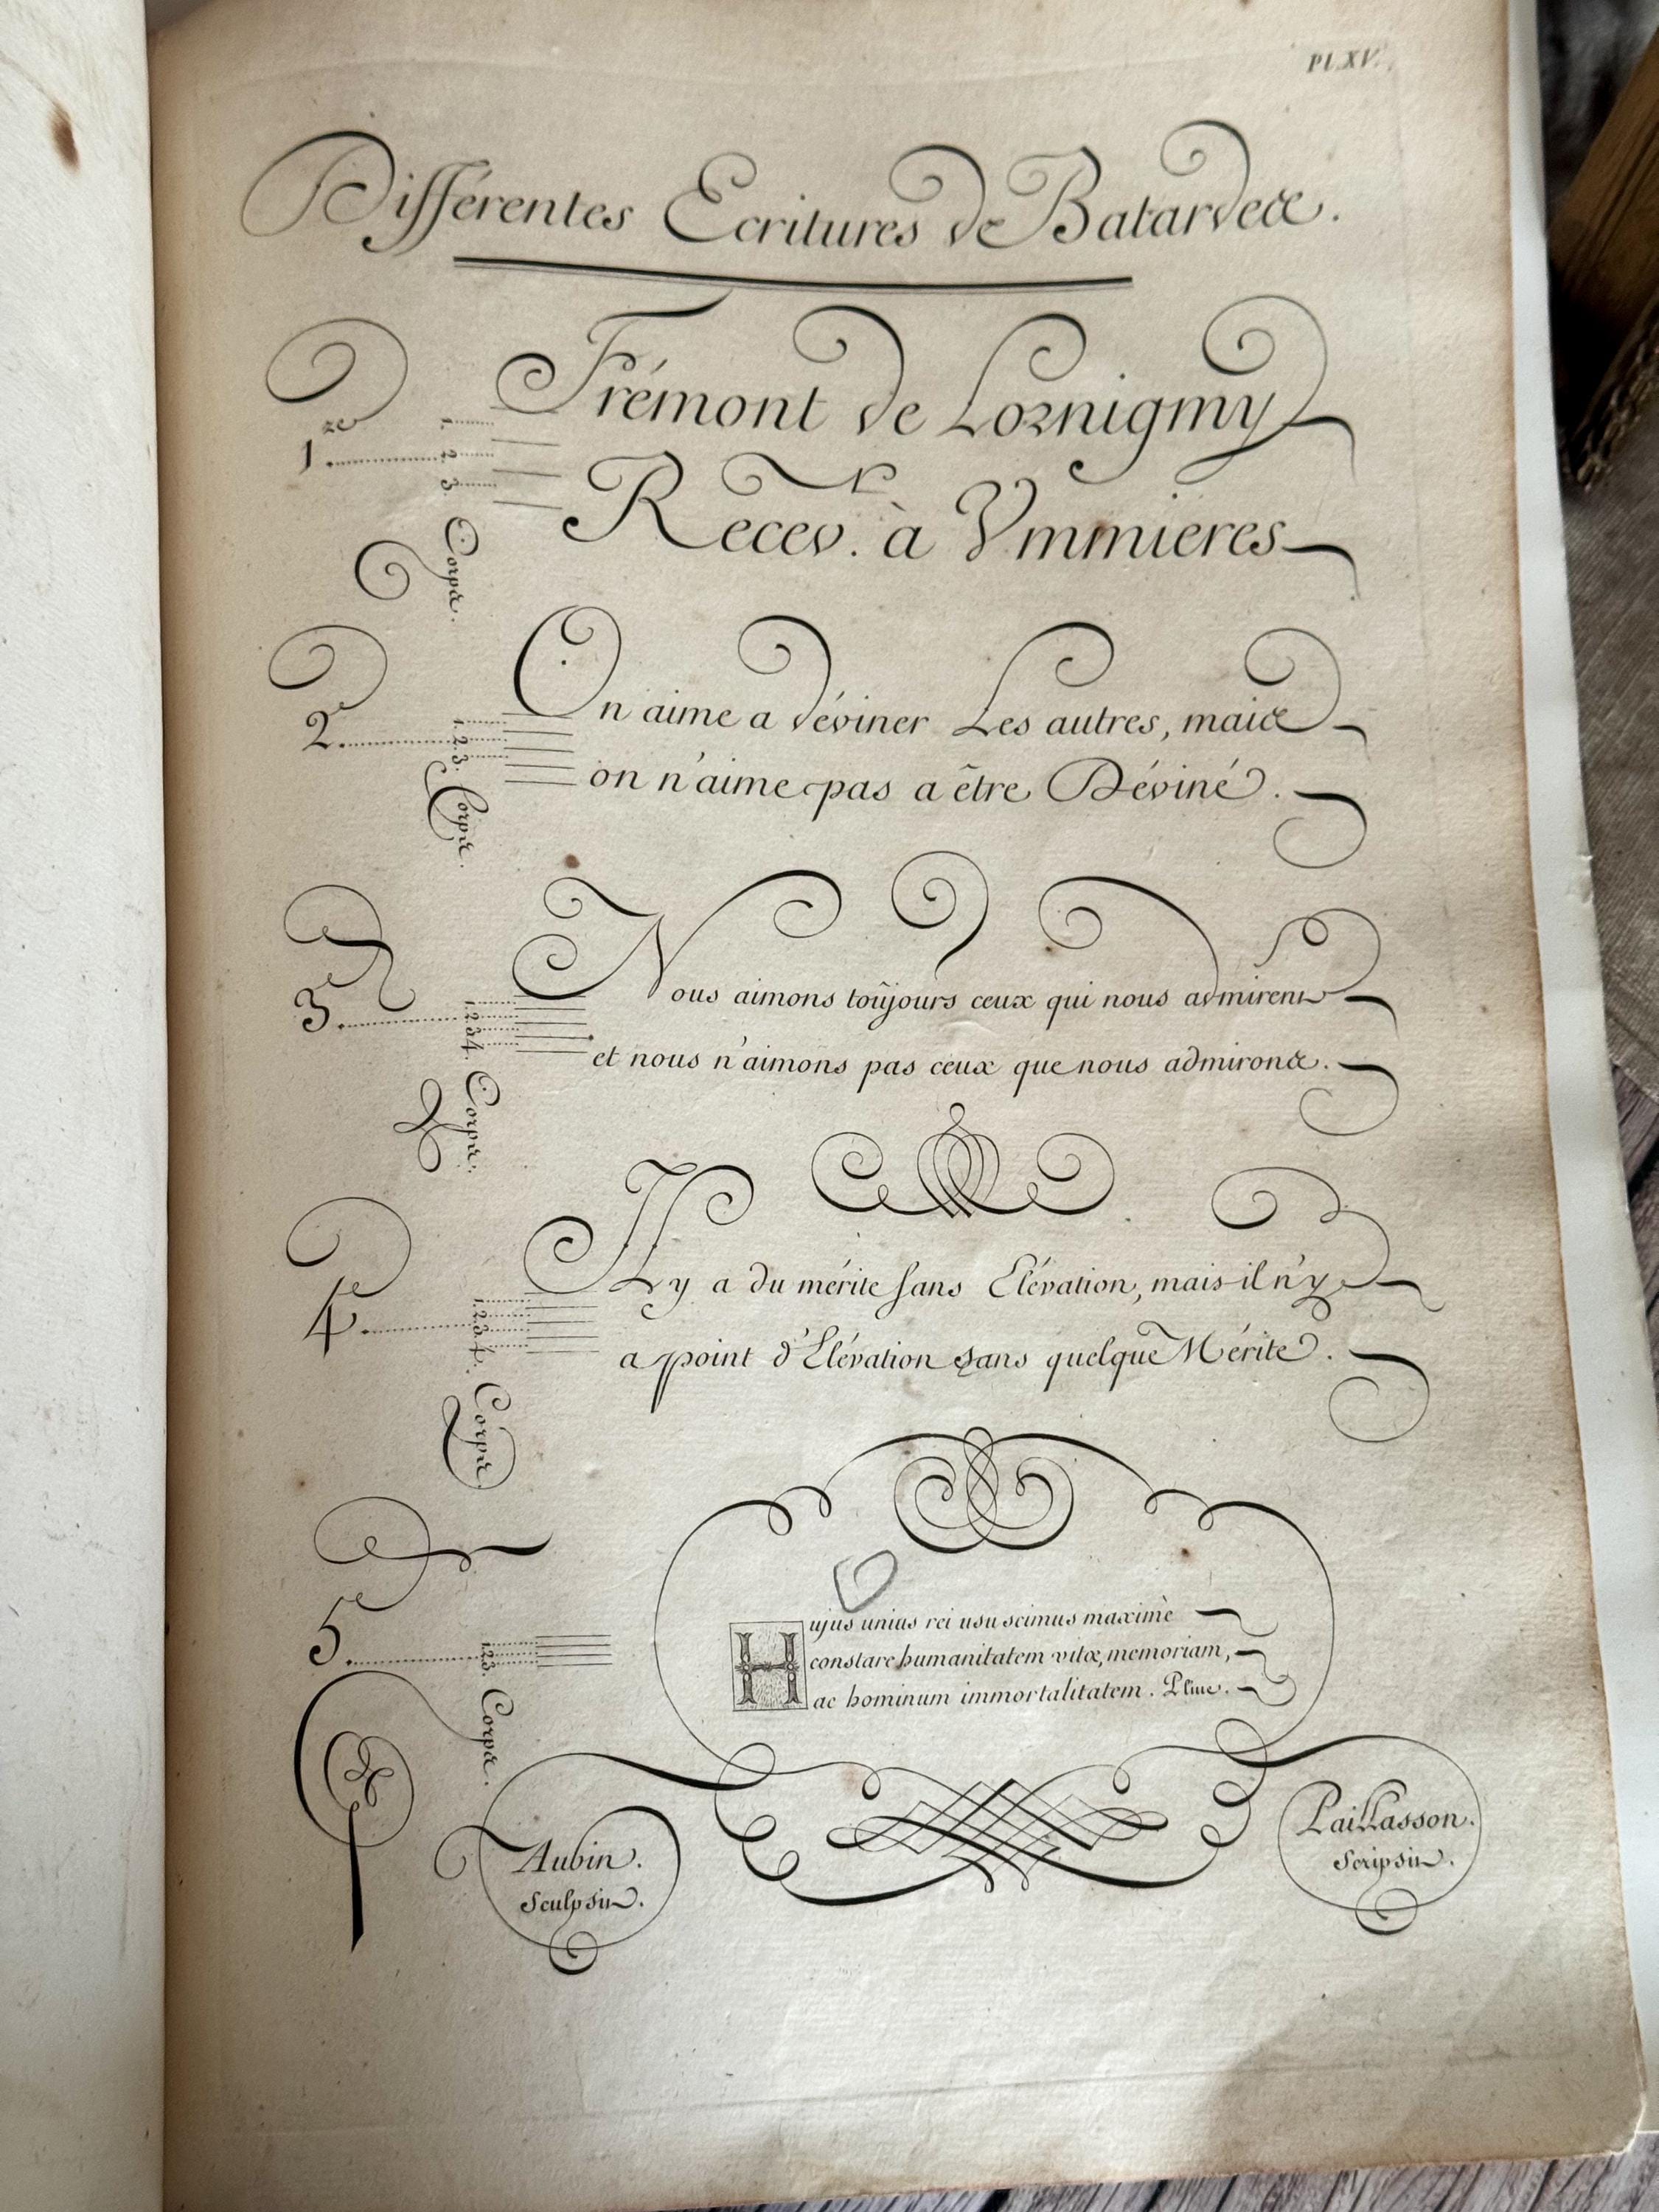 Pl. XV.
Différentes Ecritures de Batardes.
1.re 1. 2. 3. Corps.
Frémont de Lornigmy
Recev.r à Vmmieres
2.e 1. 2. 3. Corps.
On aime a déviner Les autres, mais
on n'aime pas a être Déviné.
3.e 1. 2. 3. 4. Corps.
Nous aimons toûjours ceux qui nous admirent
et nous n'aimons pas ceux que nous admirons.
4.e 1. 2. 3. 4. Corps
Il y a du mérite sans Elévation, mais il n'y
a point d'Elévation sans quelque Mérite.
5.e 1. 2. 3. Corps.
Hujus unius rei usu scimus maximè
constare humanitatem vitæ, memoriam,
ac hominum immortalitatem. Pline.
Aubin.
Sculpsit.
Paillasson.
Scripsit.